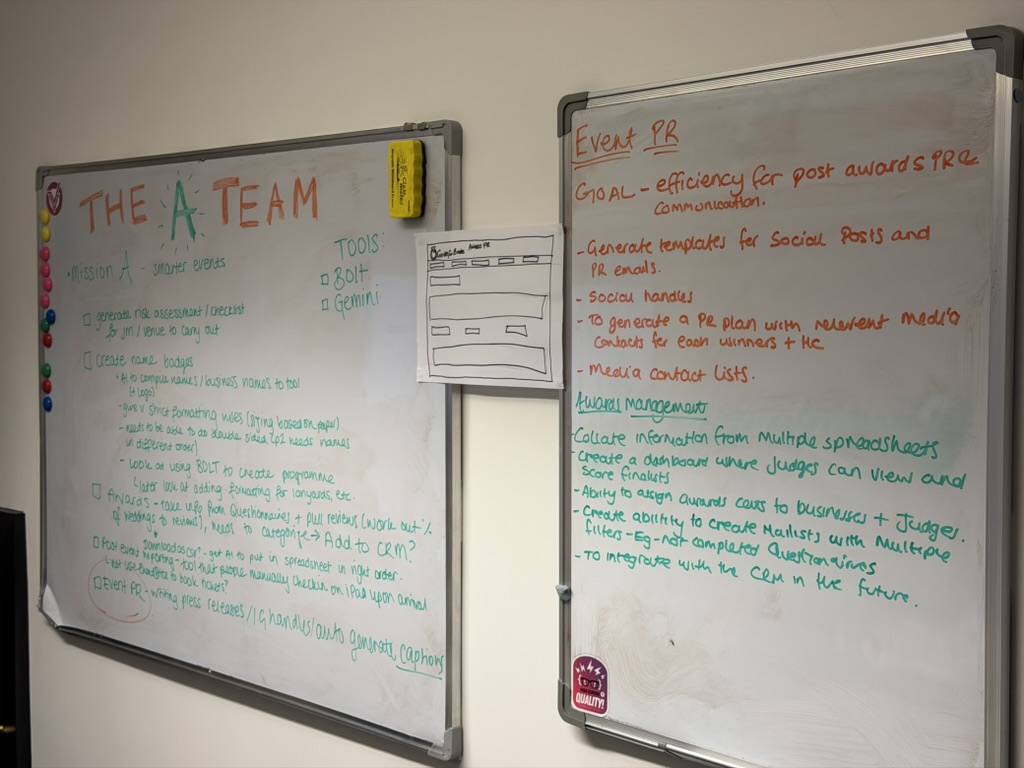 THE A TEAM
• Mission A - smarter events
TOOLS:
□ BOLT
□ Gemini
□ generate risk assessment / checklist
for / venue to carry out
□ Create name badges
• AI to names / business names to tool
(+ logo)
- give v strict formatting rules (sizing based on paper)
- needs to be able to do double sided (p2 needs names
in different order)
- Look at using BOLT to create programme
later look at adding formatting for lanyards, etc.
□ Awards - take info from Questionnaires + pull reviews (work out %
of weddings to reviews), needs to categorise → Add to CRM?
Download as CSV? - get AI to put in spreadsheet in right order.
□ Post event reporting - tool that people manually checkin on iPad upon arrival
not use to book tickets?
□ Event PR - writing press releases / IG handles / auto generate captions
Awards PR
Event PR
GOAL - efficiency for post awards PR &
communication.
- Generate templates for Social Posts and
PR emails.
- Social handles
- To generate a PR plan with relevent media
contacts for each winners + HC
- Media contact lists.
Awards Management
- Collate information from multiple spreadsheets
- Create a dashboard where judges can view and
score finalists
- Ability to assign awards cats to businesses + Judges.
- Create ability to create Mailists with Multiple
filters - Eg - not completed Questionaires
- To integrate with the CRM in the future.
QUALITY!